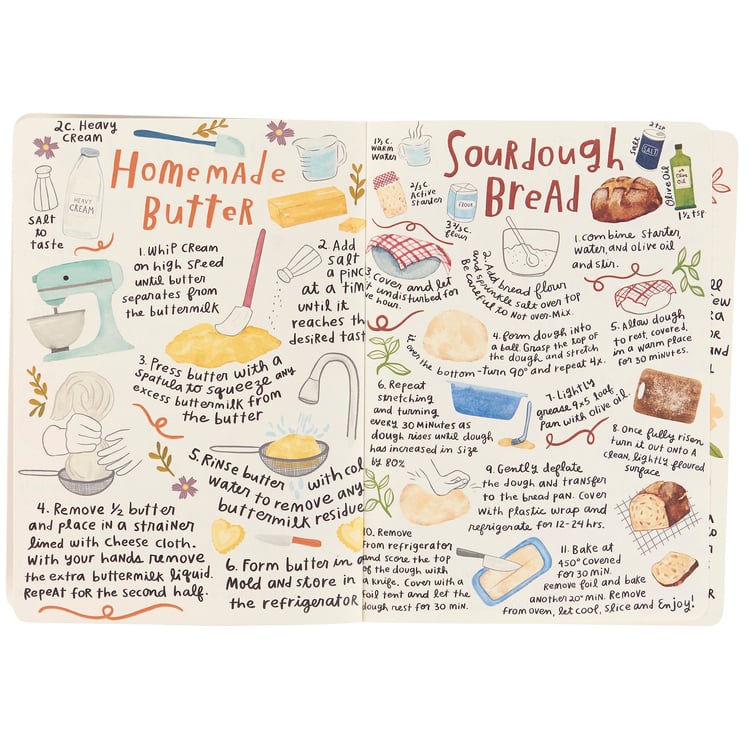 2c. Heavy
cream
Homemade
Butter
salt
to
taste
HEAVY
CREAM
1. Whip cream
on high speed
until butter
separates from
the buttermilk
2. Add
salt
a pinc
at a tim
until it
reaches th
desired tast
3. Press butter with a
spatula to squeeze any
excess buttermilk from
the butter
4. Remove ½ butter
and place in a strainer
lined with cheese cloth.
With your hands remove
the extra buttermilk liquid.
Repeat for the second half.
5. Rinse butter with col
water to remove any
buttermilk residue
6. Form butter in a
mold and store in
the refrigerator
Sourdough
Bread
1½ c.
warm
water
⅔ c.
Active
Starter
FLOUR
3¾ c.
flour
Salt
2 tsp
SALT
Olive Oil
1½ tsp
1. Combine starter,
water, and olive oil
and stir.
2. Add bread flour
and sprinkle salt over top
Be careful to not over-mix.
3. Cover and let
it undisturbed for
ne hour.
4. Form dough into
a ball. Grasp the top of
the dough and stretch
over the bottom-turn 90° and repeat 4x.
5. Allow dough
to rest, covered,
in a warm place
for 30 minutes.
6. Repeat
stretching
and turning
every 30 minutes as
dough rises until dough
has increased in size
by 80%
7. Lightly
grease 9x5 loaf
pan with olive oil.
8. Once fully risen
turn it out onto a
clean, lightly floured
surface
9. Gently deflate
the dough and transfer
to the bread pan. Cover
with plastic wrap and
refrigerate for 12-24 hrs.
10. Remove
from refrigerator
and score the top
of the dough with
a knife. Cover with a
foil tent and let the
dough rest for 30 min.
11. Bake at
450° covered
for 30 min.
Remove foil and bake
another 20 min. Remove
from oven, let cool, slice and enjoy!